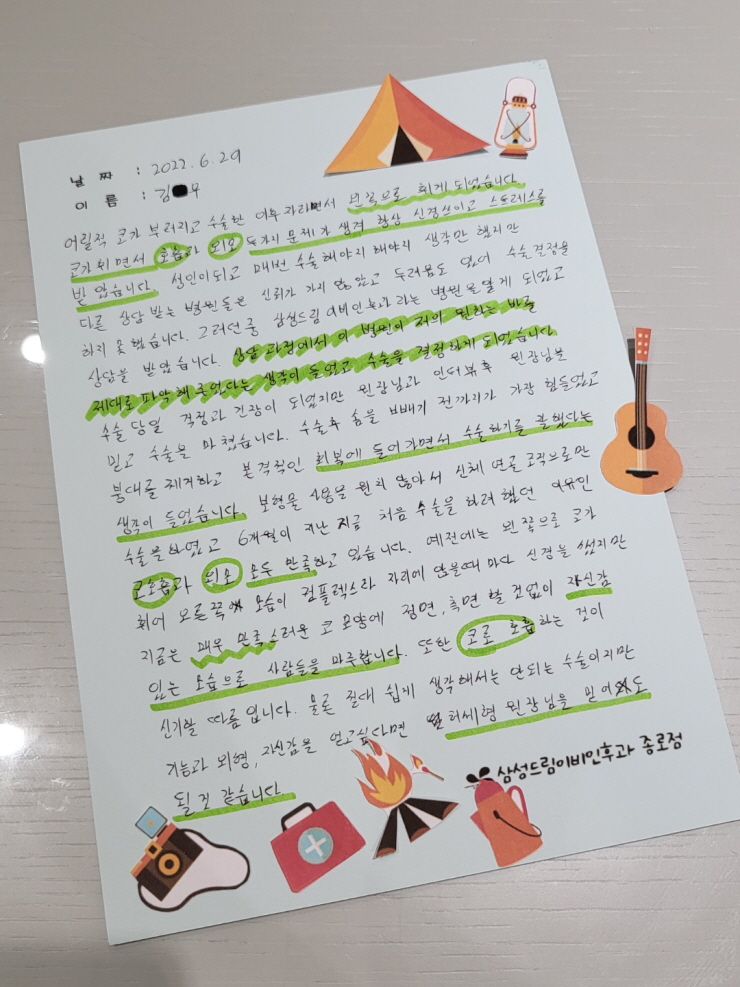 날 짜 : 2022. 6. 29
이 름 : 김 우
어릴적 코가 부러지고 수술한 이후 자라면서 왼쪽으로 휘게 되었습니다.
코가 휘면서 호흡과 외모 두가지 문제가 생겨 항상 신경쓰이고 스트레스를
받았습니다. 성인이되고 매번 수술해야지 해야지 생각만 했지만
다른 상담 받는 병원들은 신뢰가 가지 않았고 두려움도 있어 수술결정을
하지 못했습니다. 그러던중 삼성드림이비인후과라는 병원을 알게 되었고
상담을 받았습니다. 상담 과정에서 이 병원이 저의 원하는 바를
제대로 파악해 주었다는 생각이 들었고 수술을 결정하게 되었습니다.
수술 당일 걱정과 긴장이 되었지만 원장님과 인터뷰후 원장님을
믿고 수술을 마쳤습니다. 수술후 솜을 빼기 전까지가 가장 힘들었고
붕대를 제거하고 본격적인 회복에 들어가면서 수술하기를 잘했다는
생각이 들었습니다. 보형물 사용을 원치 않아서 신체 연골 조직으로만
수술을하였고 6개월이 지난 지금 처음 수술을 하려 했던 이유인
코호흡과 외모 모두 만족하고 있습니다. 예전에는 왼쪽으로 코가
휘어 오른쪽 모습이 컴플렉스라 자리에 앉을때 마다 신경을 썼지만
지금은 매우 만족스러운 코 모양에 정면, 측면 할 것없이 자신감
있는 모습으로 사람들을 마주합니다. 또한 코로 호흡하는 것이
신기할 따름입니다. 물론 절대 쉽게 생각해서는 안되는 수술이지만
기능과 외형, 자신감을 얻고싶다면 허세형 원장님을 믿어도
될것 같습니다
삼성드림이비인후과 종로점